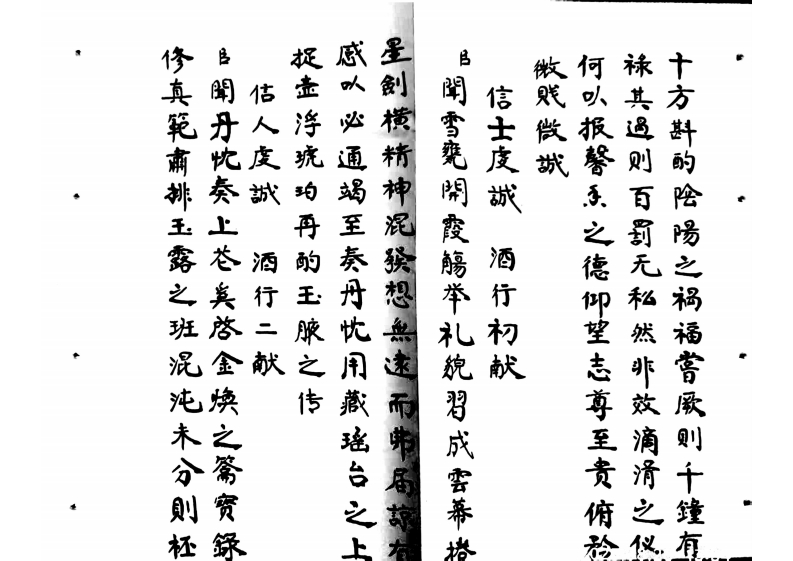 十方斟酌陰陽之禍福嘗厥则千鐘有
禄其過则百罰无私然非效滴涓之仪
何以报馨香之德仰望志尊至贵俯於
微贱微誠
信士虔誠 酒行初献
臣聞雪甕開霞觴举礼貌習成雲幕
星劍横精神混發想無遠而弗届諒有
感以必通竭至奏丹忱用藏瑶台之上
捉壶浮琥珀再酌玉腋之传
信人虔誠 酒行二献
臣聞丹忱奏上苍奚啓金焕之籌寳録
修真範肅排玉露之班混沌未分则杯